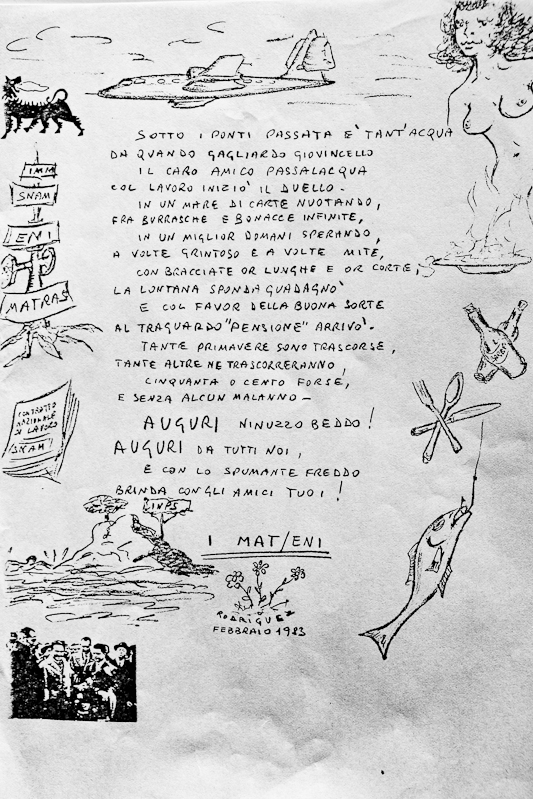 SOTTO I PONTI PASSATA E' TANT'ACQUA
DA QUANDO GAGLIARDO GIOVINCELLO
IL CARO AMICO PASSALACQUA
COL LAVORO INIZIO' IL DUELLO-
IN UN MARE DI CARTE NUOTANDO,
FRA BURRASCHE E BONACCE INFINITE,
IN UN MIGLIOR DOMANI SPERANDO,
A VOLTE GRINTOSO E A VOLTE MITE,
CON BRACCIATE OR LUNGHE E OR CORTE,
LA LONTANA SPONDA GUADAGNO'
E COL FAVOR DELLA BUONA SORTE
AL TRAGUARDO "PENSIONE" ARRIVO'.
TANTE PRIMAVERE SONO TRASCORSE,
TANTE ALTRE NE TRASCORRERANNO,
CINQUANTA O CENTO FORSE,
E SENZA ALCUN MALANNO-
AUGURI NINUZZO BEDDO!
AUGURI DA TUTTI NOI,
E CON LO SPUMANTE FREDDO
BRINDA CON GLI AMICI TUOI!
I MAT/ENI
RODRIGUEZ
FEBBRAIO 1983
IMM
SNAM
ENI
MATRAS
CONTRATTO
NAZIONALE
DI LAVORO
SNAM
INPS